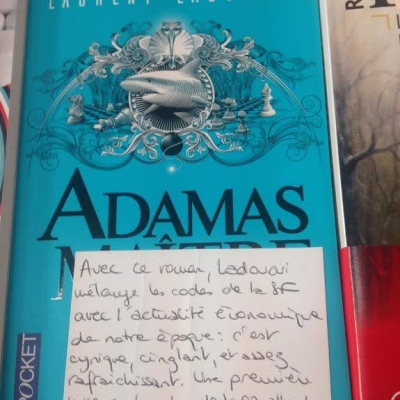 LAURENT
ADAMAS
MAÎTRE
POCKET
Avec ce roman, Ladouari
mélange les codes de la SF
avec l'actualité économique
de notre époque : c'est
cynique, cinglant, et assez
rafraichissant. Une première
R